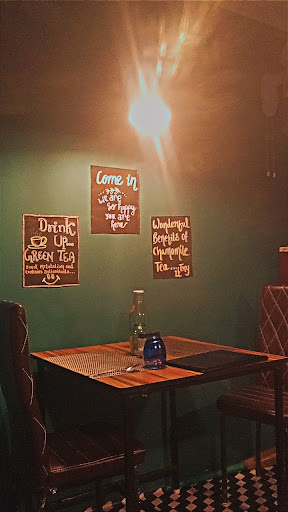 Come in
we are
So happy
you are
here
Drink
Up...
GREEN TEA
Good Metabolism and
Contains Antioxidants...
Wonderful
Benefits of
Chamomile
Tea.....Try
It